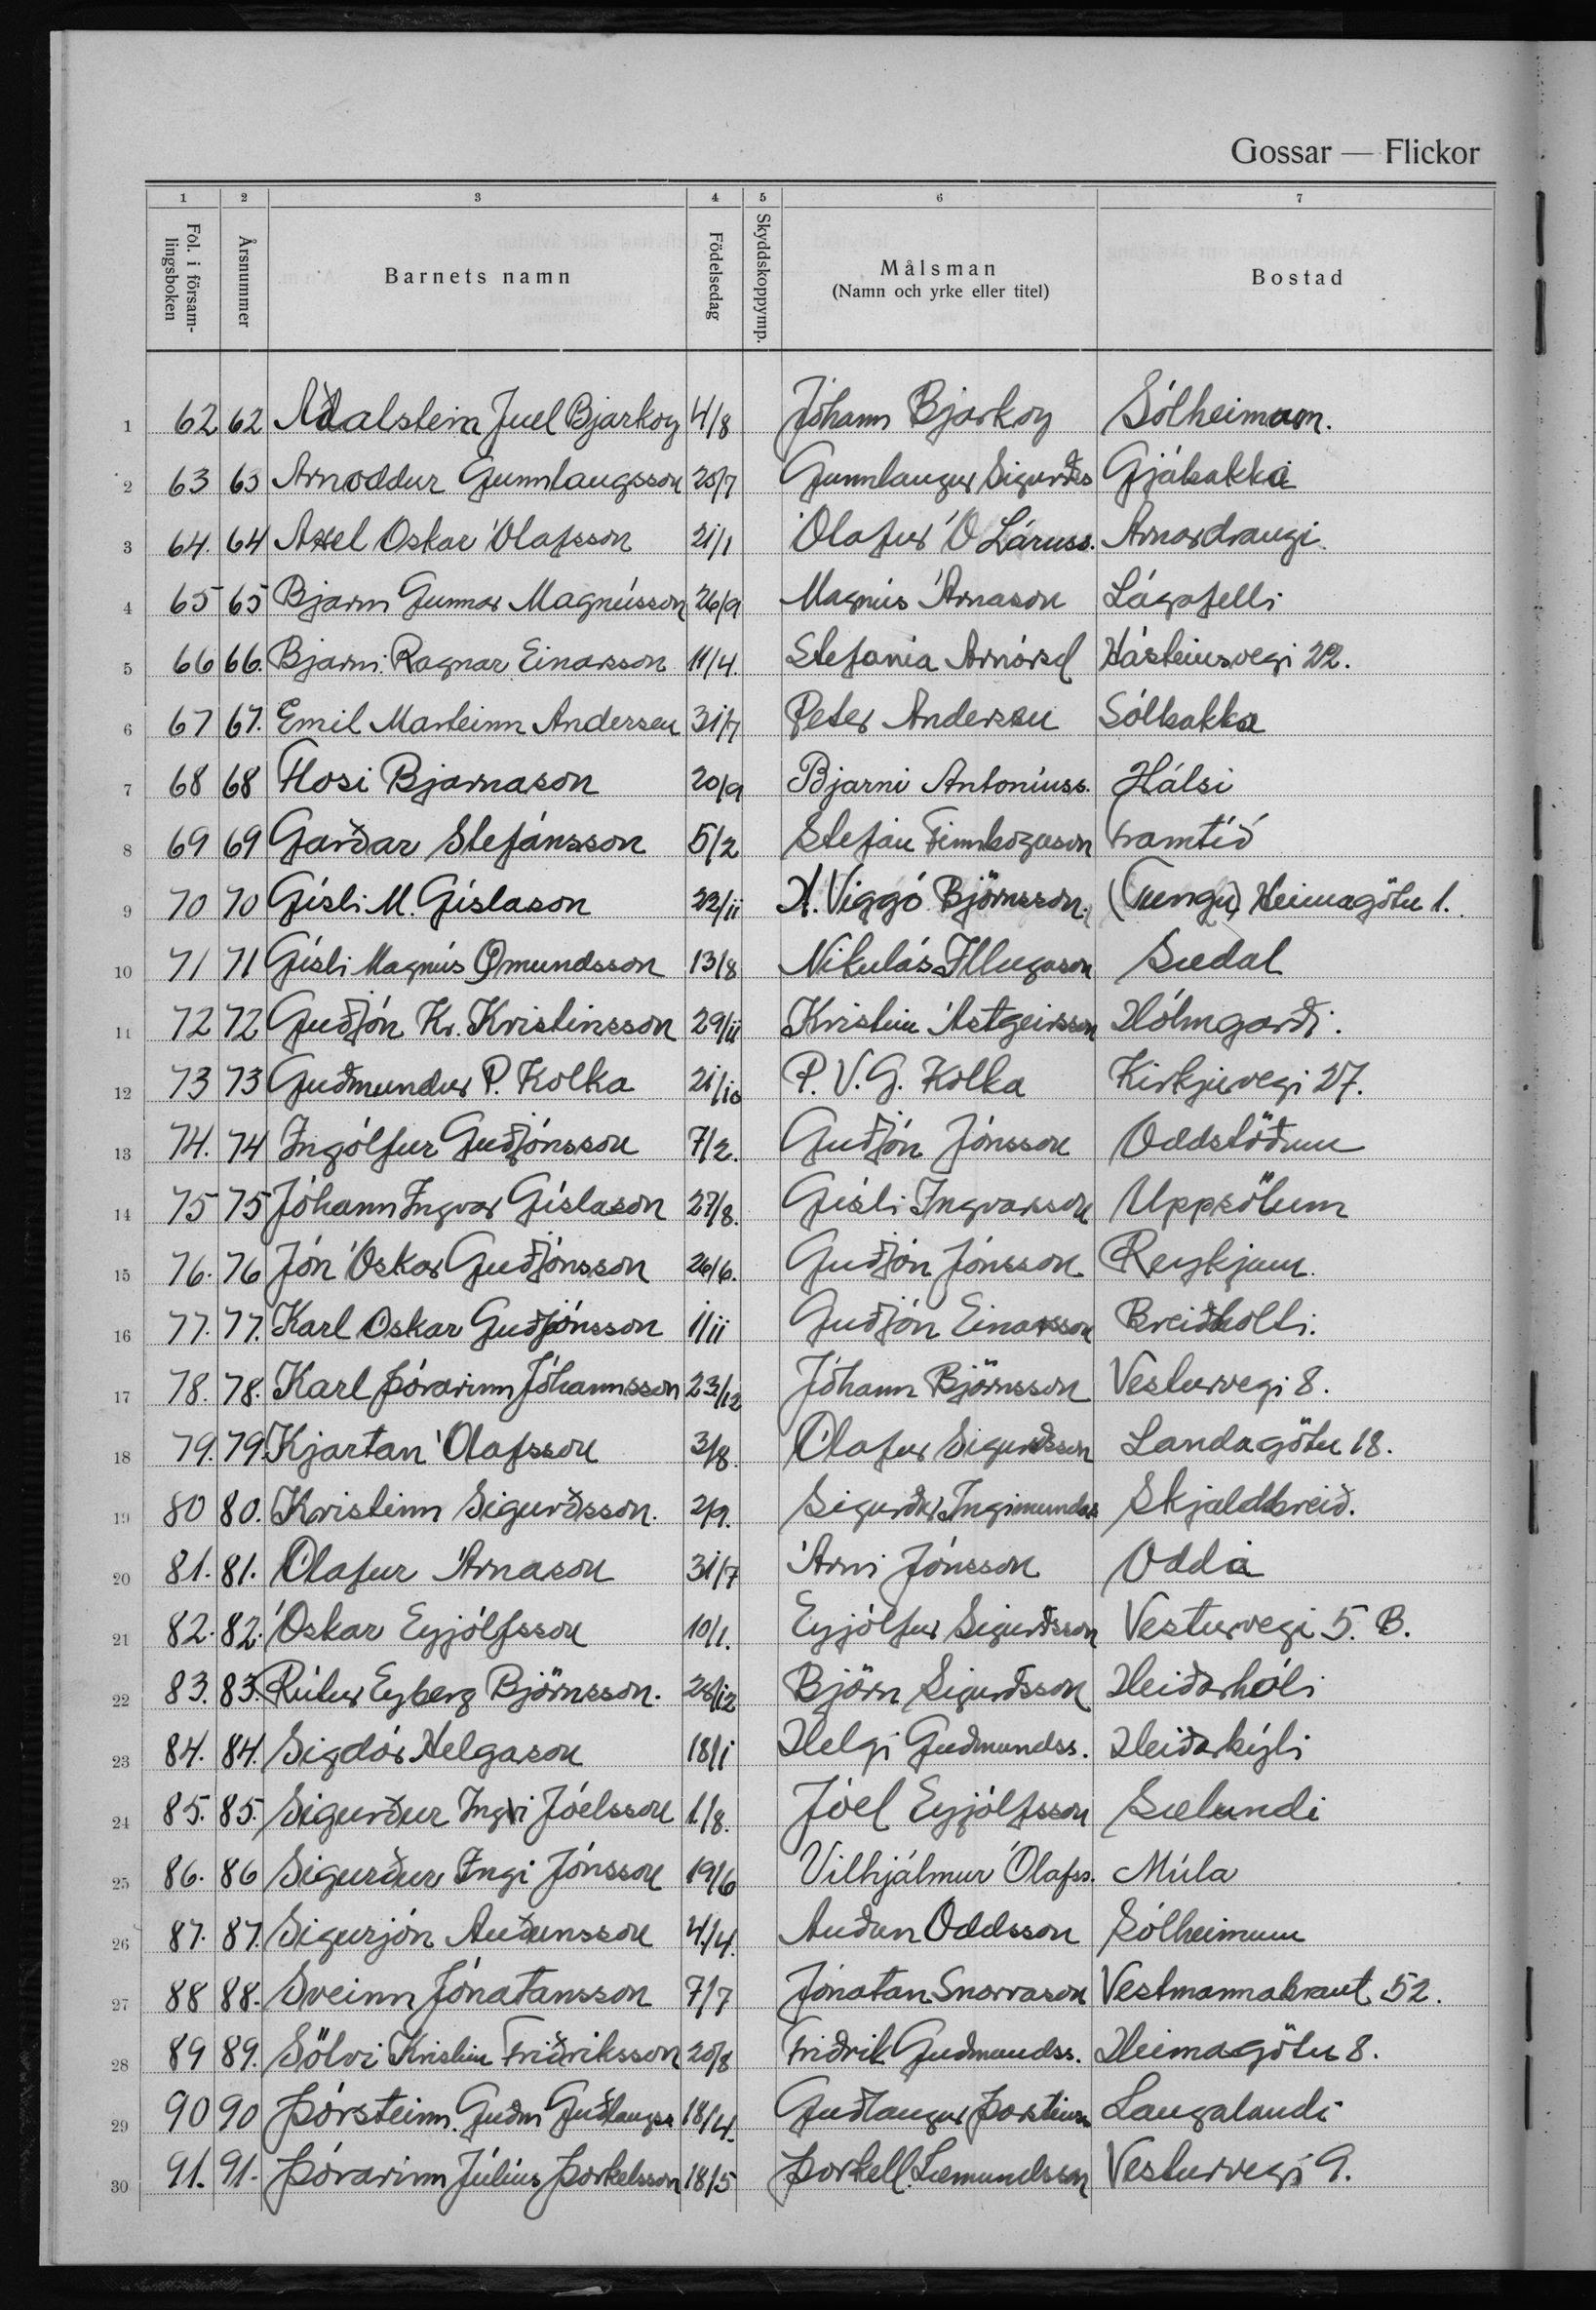 Gossar — Flickor
1 2 3 4 5 6 7
Fol. i församlingsboken Årsnummer Barnets namn Födelsedag Skyddskoppymp. Målsman (Namn och yrke eller titel) Bostad
1 62 62 Aðalstein Juel Bjarkoy 4/8 Jóhann Bjarkoy Sólheimum.
2 63 63 Arnoddur Gunnlaugsson 25/7 Gunnlaugur Sigurðss Gjábakka
3 64. 64 Axel Oskar Ólafsson 21/1 Ólafur Ó Láruss. Arnardrangi.
4 65 65 Bjarni Gunnar Magnússon 26/9 Magnús Árnason Lágafelli
5 66 66. Bjarni Ragnar Einarsson 11/4. Stefanía Arnórsd Hásteinsvegi 22.
6 67 67. Emil Marteinn Andersen 31/7 Peter Andersen Sólbakka
7 68 68 Flosi Bjarnason 20/9 Bjarni Antoníuss. Hálsi
8 69 69 Garðar Stefánsson 5/2 Stefán Finnbogason Framtíð
9 70 70 Gísli M. Gíslason 22/11 K. Viggó Björnsson. (Tungu) Heimagötu 1.
10 71 71 Gísli Magnús Ömundsson 13/8 Nikulás Illugason Sædal
11 72 72 Guðjón Kr. Kristinsson 29/11 Kristinn Ástgeirsson Hólmgarði.
12 73 73 Guðmundur P. Kolka 21/10 P. V. G. Kolka Kirkjuvegi 27.
13 74. 74 Ingólfur Guðjónsson 7/2. Guðjón Jónsson Oddstöðum
14 75 75 Jóhann Ingvar Gíslason 27/8. Gísli Ingvarsson Uppsölum
15 76. 76 Jón Óskar Guðjónsson 26/6. Guðjón Jónsson Reykjum.
16 77. 77. Karl Oskar Guðjónsson 1/11 Guðjón Einarsson Breiðholti.
17 78. 78. Karl Þórarinn Jóhannsson 23/12 Jóhann Björnsson Vesturvegi 8.
18 79. 79. Kjartan Ólafsson 3/8. Ólafur Sigurðsson Landagötu 18.
19 80 80. Kristinn Sigurðsson. 2/9. Sigurður Ingimundar Skjaldbreið.
20 81. 81. Olafur Árnason 31/7 Árni Jónsson Odda
21 82. 82. Óskar Eyjólfsson 10/1. Eyjólfur Sigurðsson Vesturvegi 5. B.
22 83. 83. Rútur Eyberg Björnsson. 28/12 Björn Sigurðsson Heiðarhóli
23 84. 84. Sigdór Helgason 18/1 Helgi Guðmundss. Heiðarbýli
24 85. 85. Sigurður Ingvi Jóelsson 1/8. Jóel Eyjólfsson Sælundi
25 86. 86 Sigurður Ingi Jónsson 19/6 Vilhjálmur Ólafss. Múla
26 87. 87. Sigurjón Auðunsson 4/4. Auðun Oddsson Sólheimum
27 88 88. Sveinn Jónatansson 7/7 Jónatan Snorrason Vestmannabraut 52.
28 89 89. Sölvi Kristinn Friðriksson 20/8 Friðrik Guðmundss. Heimagötu 8.
29 90 90 Þórsteinn Guðm Guðlaugss 18/4. Guðlaugur Þorsteinss Laugalandi
30 91. 91. Þórarinn Július Þorkelsson 18/5 Þorkell Sæmundsson Vesturvegi 9.